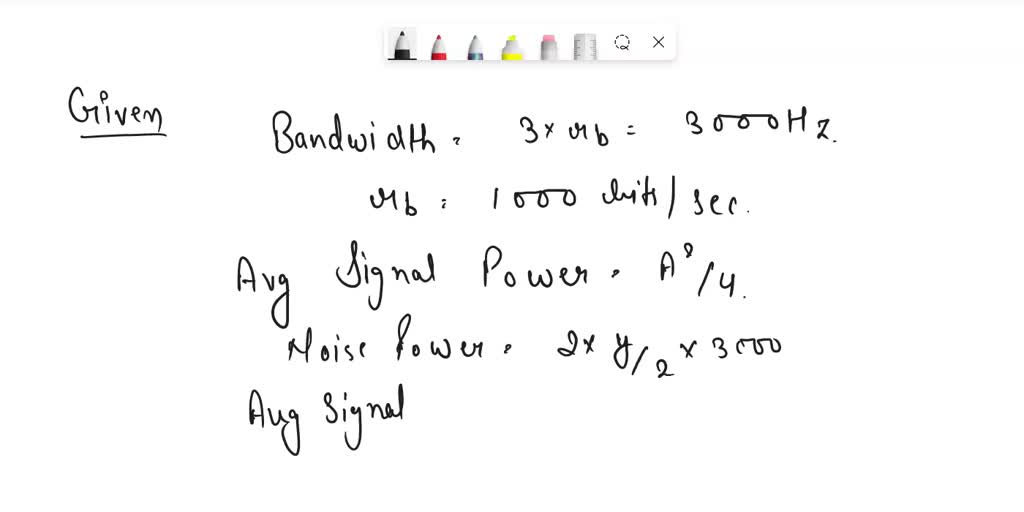 Given
Bandwidth = 3 × rb = 3000Hz.
rb = 1000 bits/sec.
Avg Signal Power = A²/4.
Noise Power = 2 × η/2 × 3000
Avg Signal